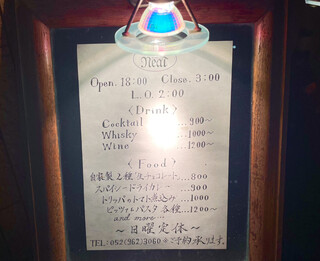 Neat
Open. 18:00 Close. 3:00
L.O. 2:00
〈Drink〉
Cocktail ...900〜
Whisky ...1000〜
Wine ...1200〜
〈Food〉
自家製2種生チョコレート....800
スパイシードライカレー...900
トリッパのトマト煮込み....1000
ピッツァ,パスタ 各種...1200〜
and more...
〜日曜定休〜
TEL:052(962)3060 ご予約承ります。